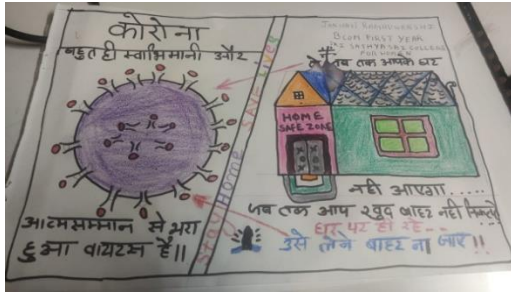 कोरोना
बहुत ही स्वाभिमानी और
आत्मसम्मान से भरा
हुआ वायरस है।।
STAY HOME SAFE LIVES
BCOM FIRST YEAR
SRI SATHYA SAI COLLEGE
FOR WOMEN
तब तक आपके घर
HOME
SAFE ZONE
नही आएगा .....
जब तक आप खुद बाहर नही निकलते
घर पर ही रहे--
उसे लेने बाहर ना जाए!!